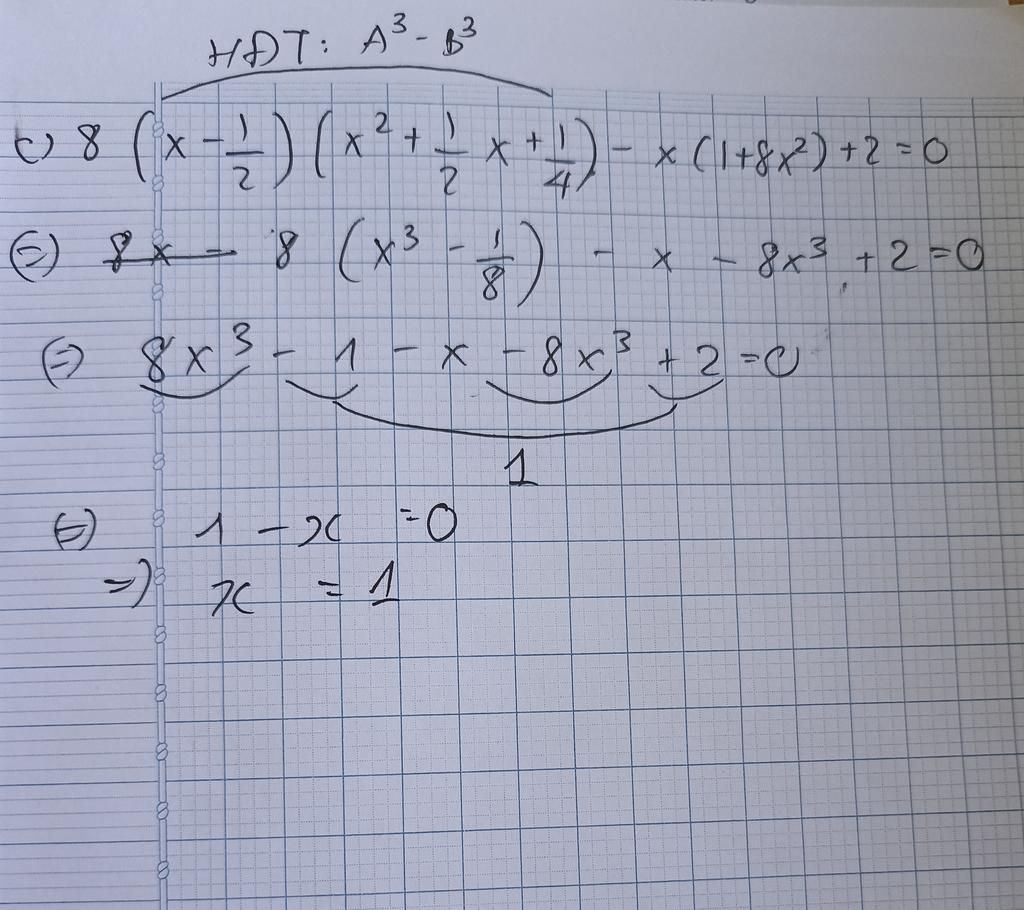 HĐT: A³ - B³
c) 8 (x - 1/2) (x² + 1/2 x + 1/4) - x (1+8x²) +2 = 0
(=) 8x - 8 (x³ - 1/8) - x - 8x³ + 2 = 0
(=) 8x³ - 1 - x - 8x³ + 2 = 0
1
(=) 1 - x = 0
=) x = 1